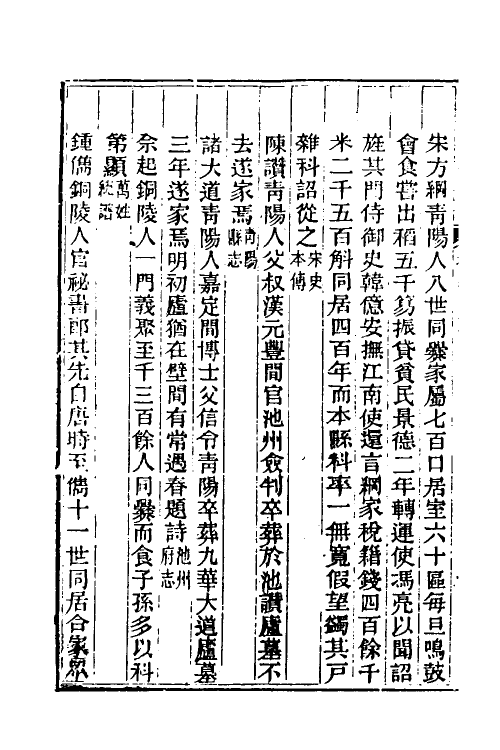 宋方綱靑陽人八世同爨家屬七百口居室六十區每旦鳴鼓
會食嘗出稻五千笏振貸貧民景德二年轉運使馮亮以聞詔
旌其門侍御史韓億安撫江南使還言綱家稅籍錢四百餘千
米二千五百斛同居四百年而本縣科率一無寬假望蠲其戸
雜科詔從之宋史本傳
陳讚靑陽人父叔漢元豐間官池州僉判卒葬於池讚廬墓不
去遂家焉靑陽縣志
諸大道靑陽人嘉定間博士父信令靑陽卒葬九華大道廬墓
三年遂家焉明初廬猶在壁間有常遇春題詩池州府志
佘起銅陵人一門義聚至千三百餘人同爨而食子孫多以科
第顯萬姓統譜
鍾儁銅陵人官祕書郎其先自唐時至儁十一世同居合家衆